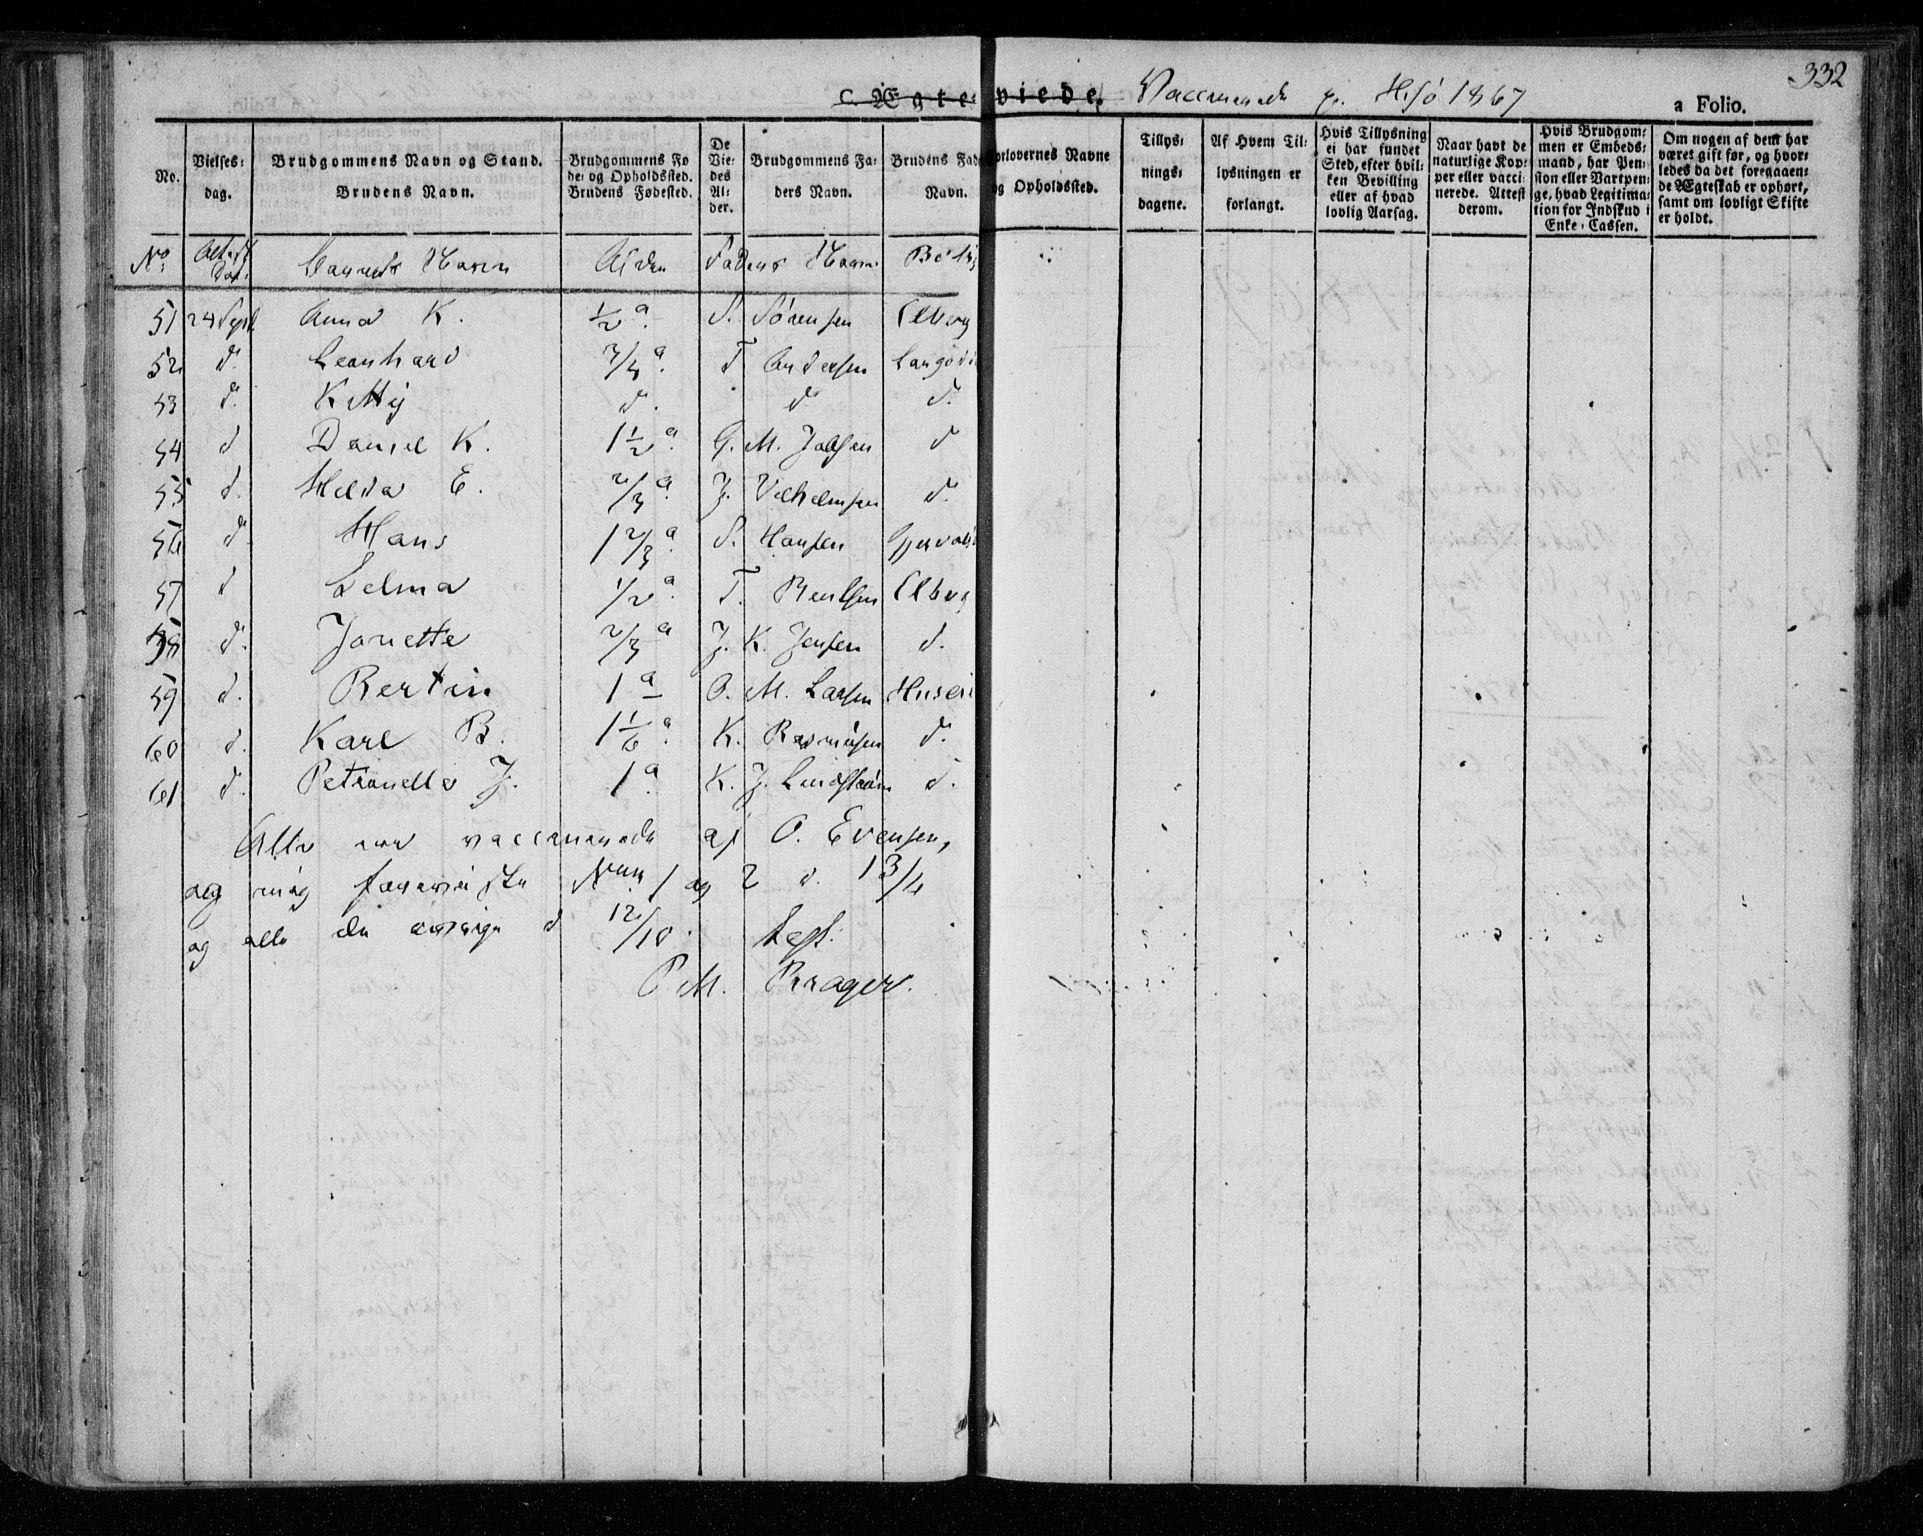 332
c. Ægteviede. Vaccinerede p. Hisø 1867
a Folio.
No. Vielses: dag. Brudgommens Navn og Stand. Brudens Navn. Brudgommens Fø de: og Opholdssted. Brudens Fødested. De Vie: des Al: der. Brudgommens Fa: ders Navn. Brudens Fad Navn. orlovernes Navne og Opholdssted. Tillys: nings: dagene. Af Hvem Til: lysningen er forlangt. Hvis Tillysning ei har fundet Sted, efter hvil: ken Bevilling eller af hvad lovlig Aarsag. Naar havt de naturlige Kop: per eller vacci: nerede. Attest derom. Hvis Brudgom: men er Embeds: mand, har Pen: sion eller Vartpen: ge, hvad Legitima: tion for Indskud i Enke-Cassen. Om nogen af dem har været gift før, og hvor: ledes da det foregaaen: de Ægteskab er ophørt, samt om lovligt Skifte er holdt.
No. Attest Dat. Barnets Navn Alder Faders Navn
51 24 Sept. Anna K. 1/2 a. S. Sørensen
52 d. Leonhard 3/4 a. T. Andersen
53 d. Kitty d. d. d.
54 d Daniel K. 1 1/2 a. G. M. d
55 d. Hilda E. 2/3 a. J. Vilhelmsen d.
56 d. Hans 1 2/3 a. S. Hansen
57 d Selma 1/2 a. T. Bentsen
58 d. Janette 2/3 a J. K. Jensen d.
59 d. Bertin 1 a O. M. Larsen
60 d. Karl B. 1 1/6 a. K. Rasmusen d.
61 d. Petronelle J. 1 a. K. J. Lindstrøm d.
Alle ere vaccinerede af O. Evensen,
og mig foreviste Num. 1 og 2 d. 13/4
og alle de øvrige d 12/10.
P. M. Krager.